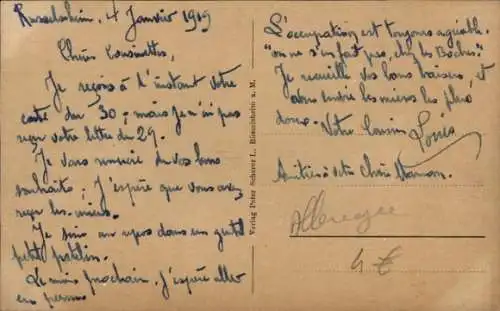 Russelsheim, 4 Janvier 1919
Chères Cousinettes,
Je reçois à l'instant votre
carte du 30; mais je n'ai pas
reçu votre lettre du 29.
Je vous remercie de vos bons
souhaits; j'espère que vous avez
reçu les miens.
Je suis au repos dans un gentil
petit patelin.
Le mois prochain j'espère aller
en perm
L'occupation est toujours agréable.
"on ne s'en fait pas, chez les Boches."
Je recueille vos bons baisers, et
vous envoie les miens les plus
doux.
Votre Cousin Louis
Amitiés à votre Chère Maman.
Verlag Peter Scherer L., Rüsselsheim a. M.
Allemagne
4 €